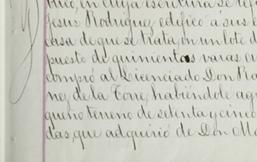 que, en cuya escritura se re
Jesus Rodriguez, edificó á sus e
casa de que se trata, en un lote d
puesto de quinientas varas cu
compró al Licenciado Don Ra
nez de la Torre, habiéndole ag
queño terreno de setenta y cinco
das que adquirió de Don Ma